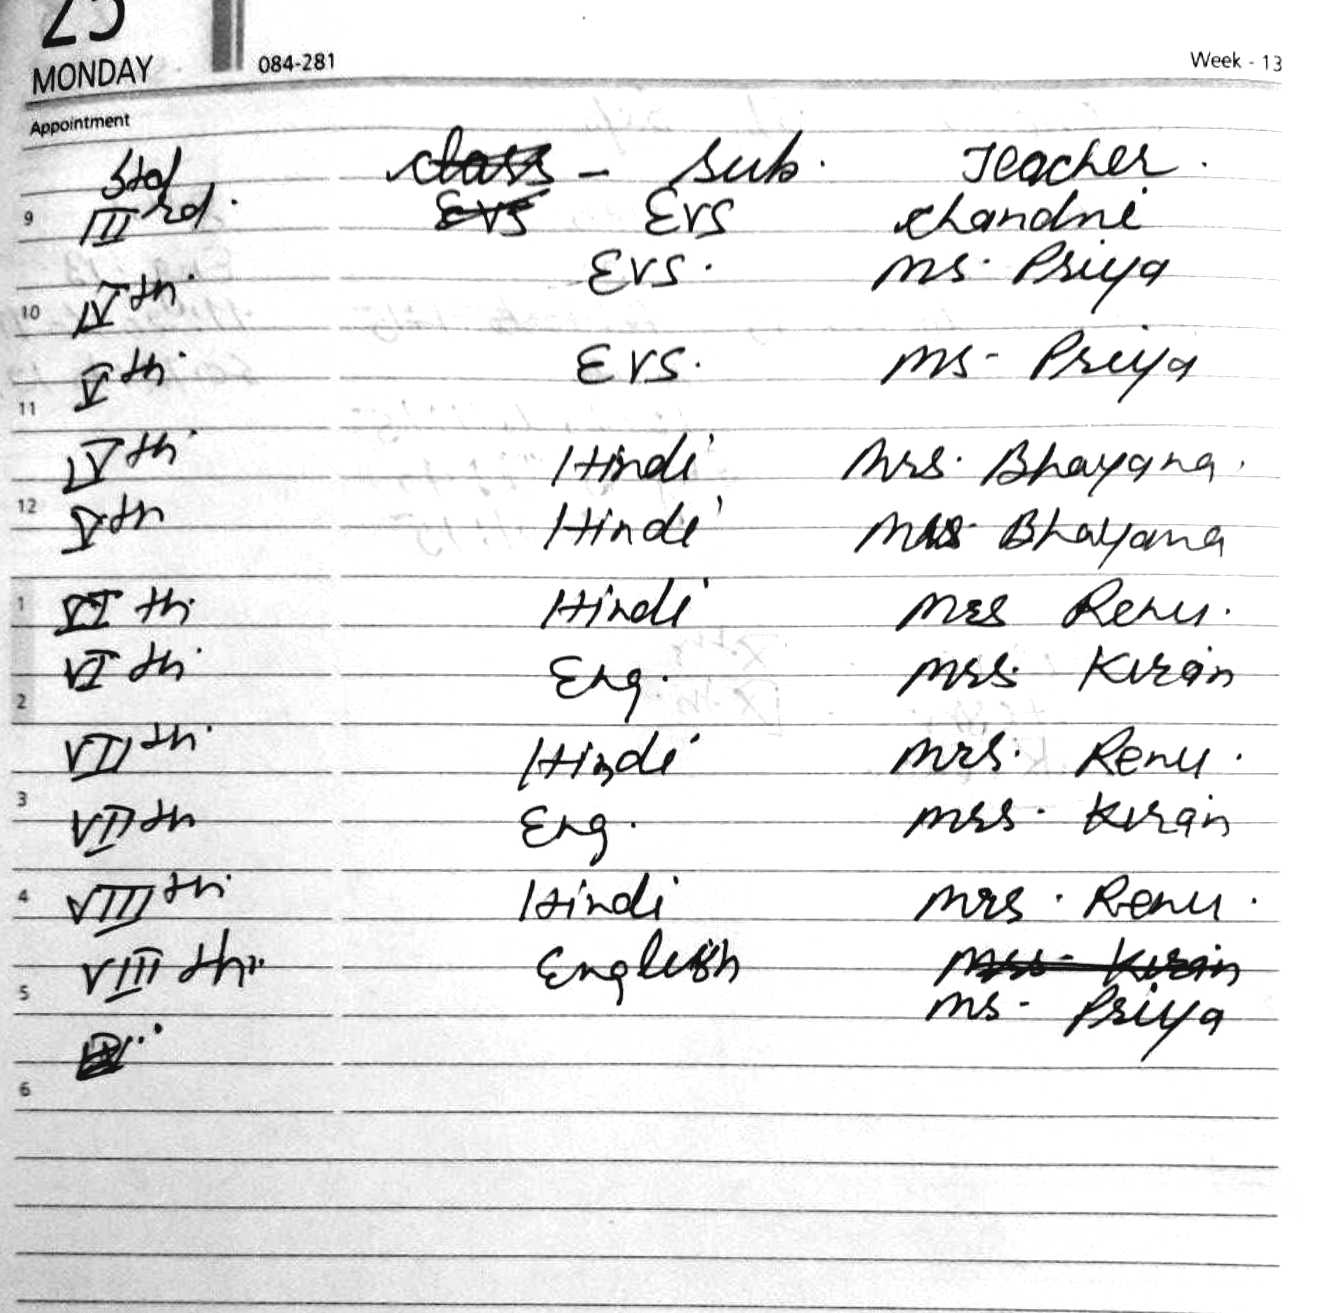 25
MONDAY 084-281 Week - 13
Appointment
Std class - Sub. Teacher.
9 III rd. EVS EVS Chandni
10 IV th. EVS. Ms. Priya
11 V th. EVS. Ms - Priya
IV th. Hindi Mrs. Bhayana.
12 V th Hindi Mrs Bhayana
1 VI th. Hindi Mrs Renu.
2 VI th. Eng. Mrs. Kiran
VII th. Hindi Mrs. Renu.
3 VII th Eng. Mrs. Kiran
4 VIII th. Hindi Mrs. Renu.
5 VIII th. English Mrs. Kiran
Ms - Priya
6